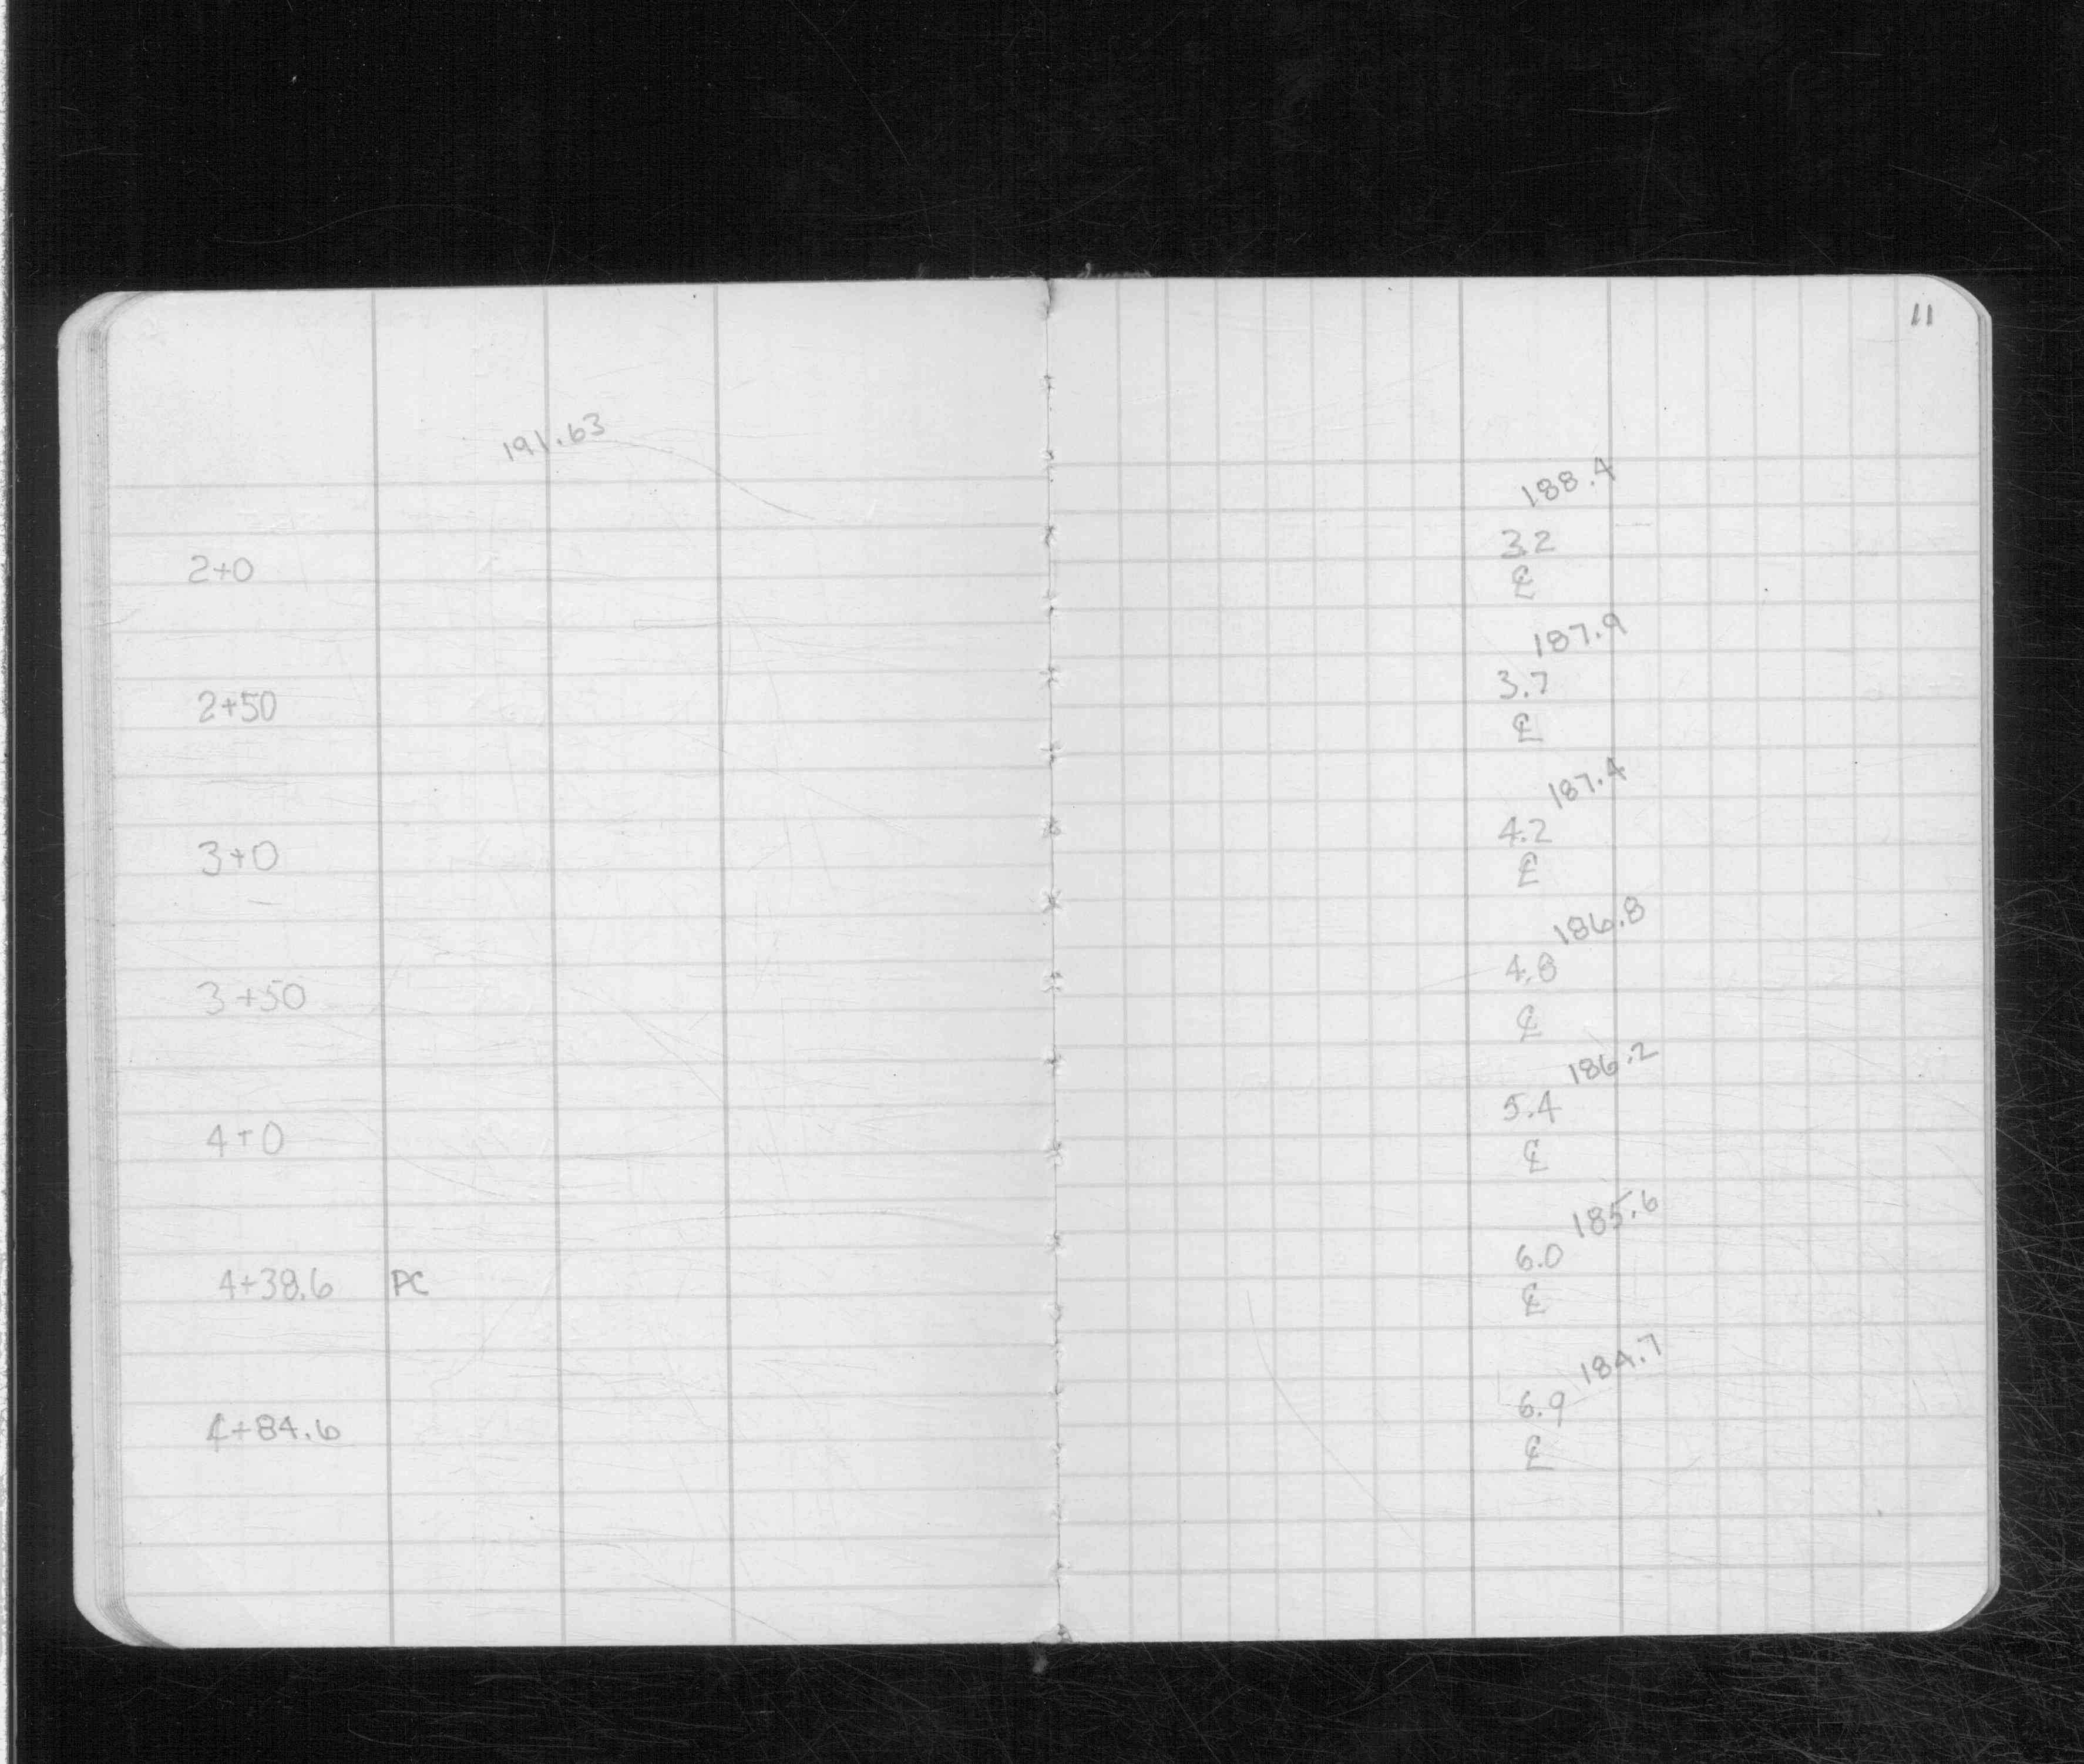 11
191.63
188.4
2+0 3.2
℄
187.9
2+50 3.7
℄
187.4
3+0 4.2
℄
186.8
3+50 4.8
℄
186.2
4+0 5.4
℄
185.6
4+38.6 PC 6.0
℄
184.7
4+84.6 6.9
℄